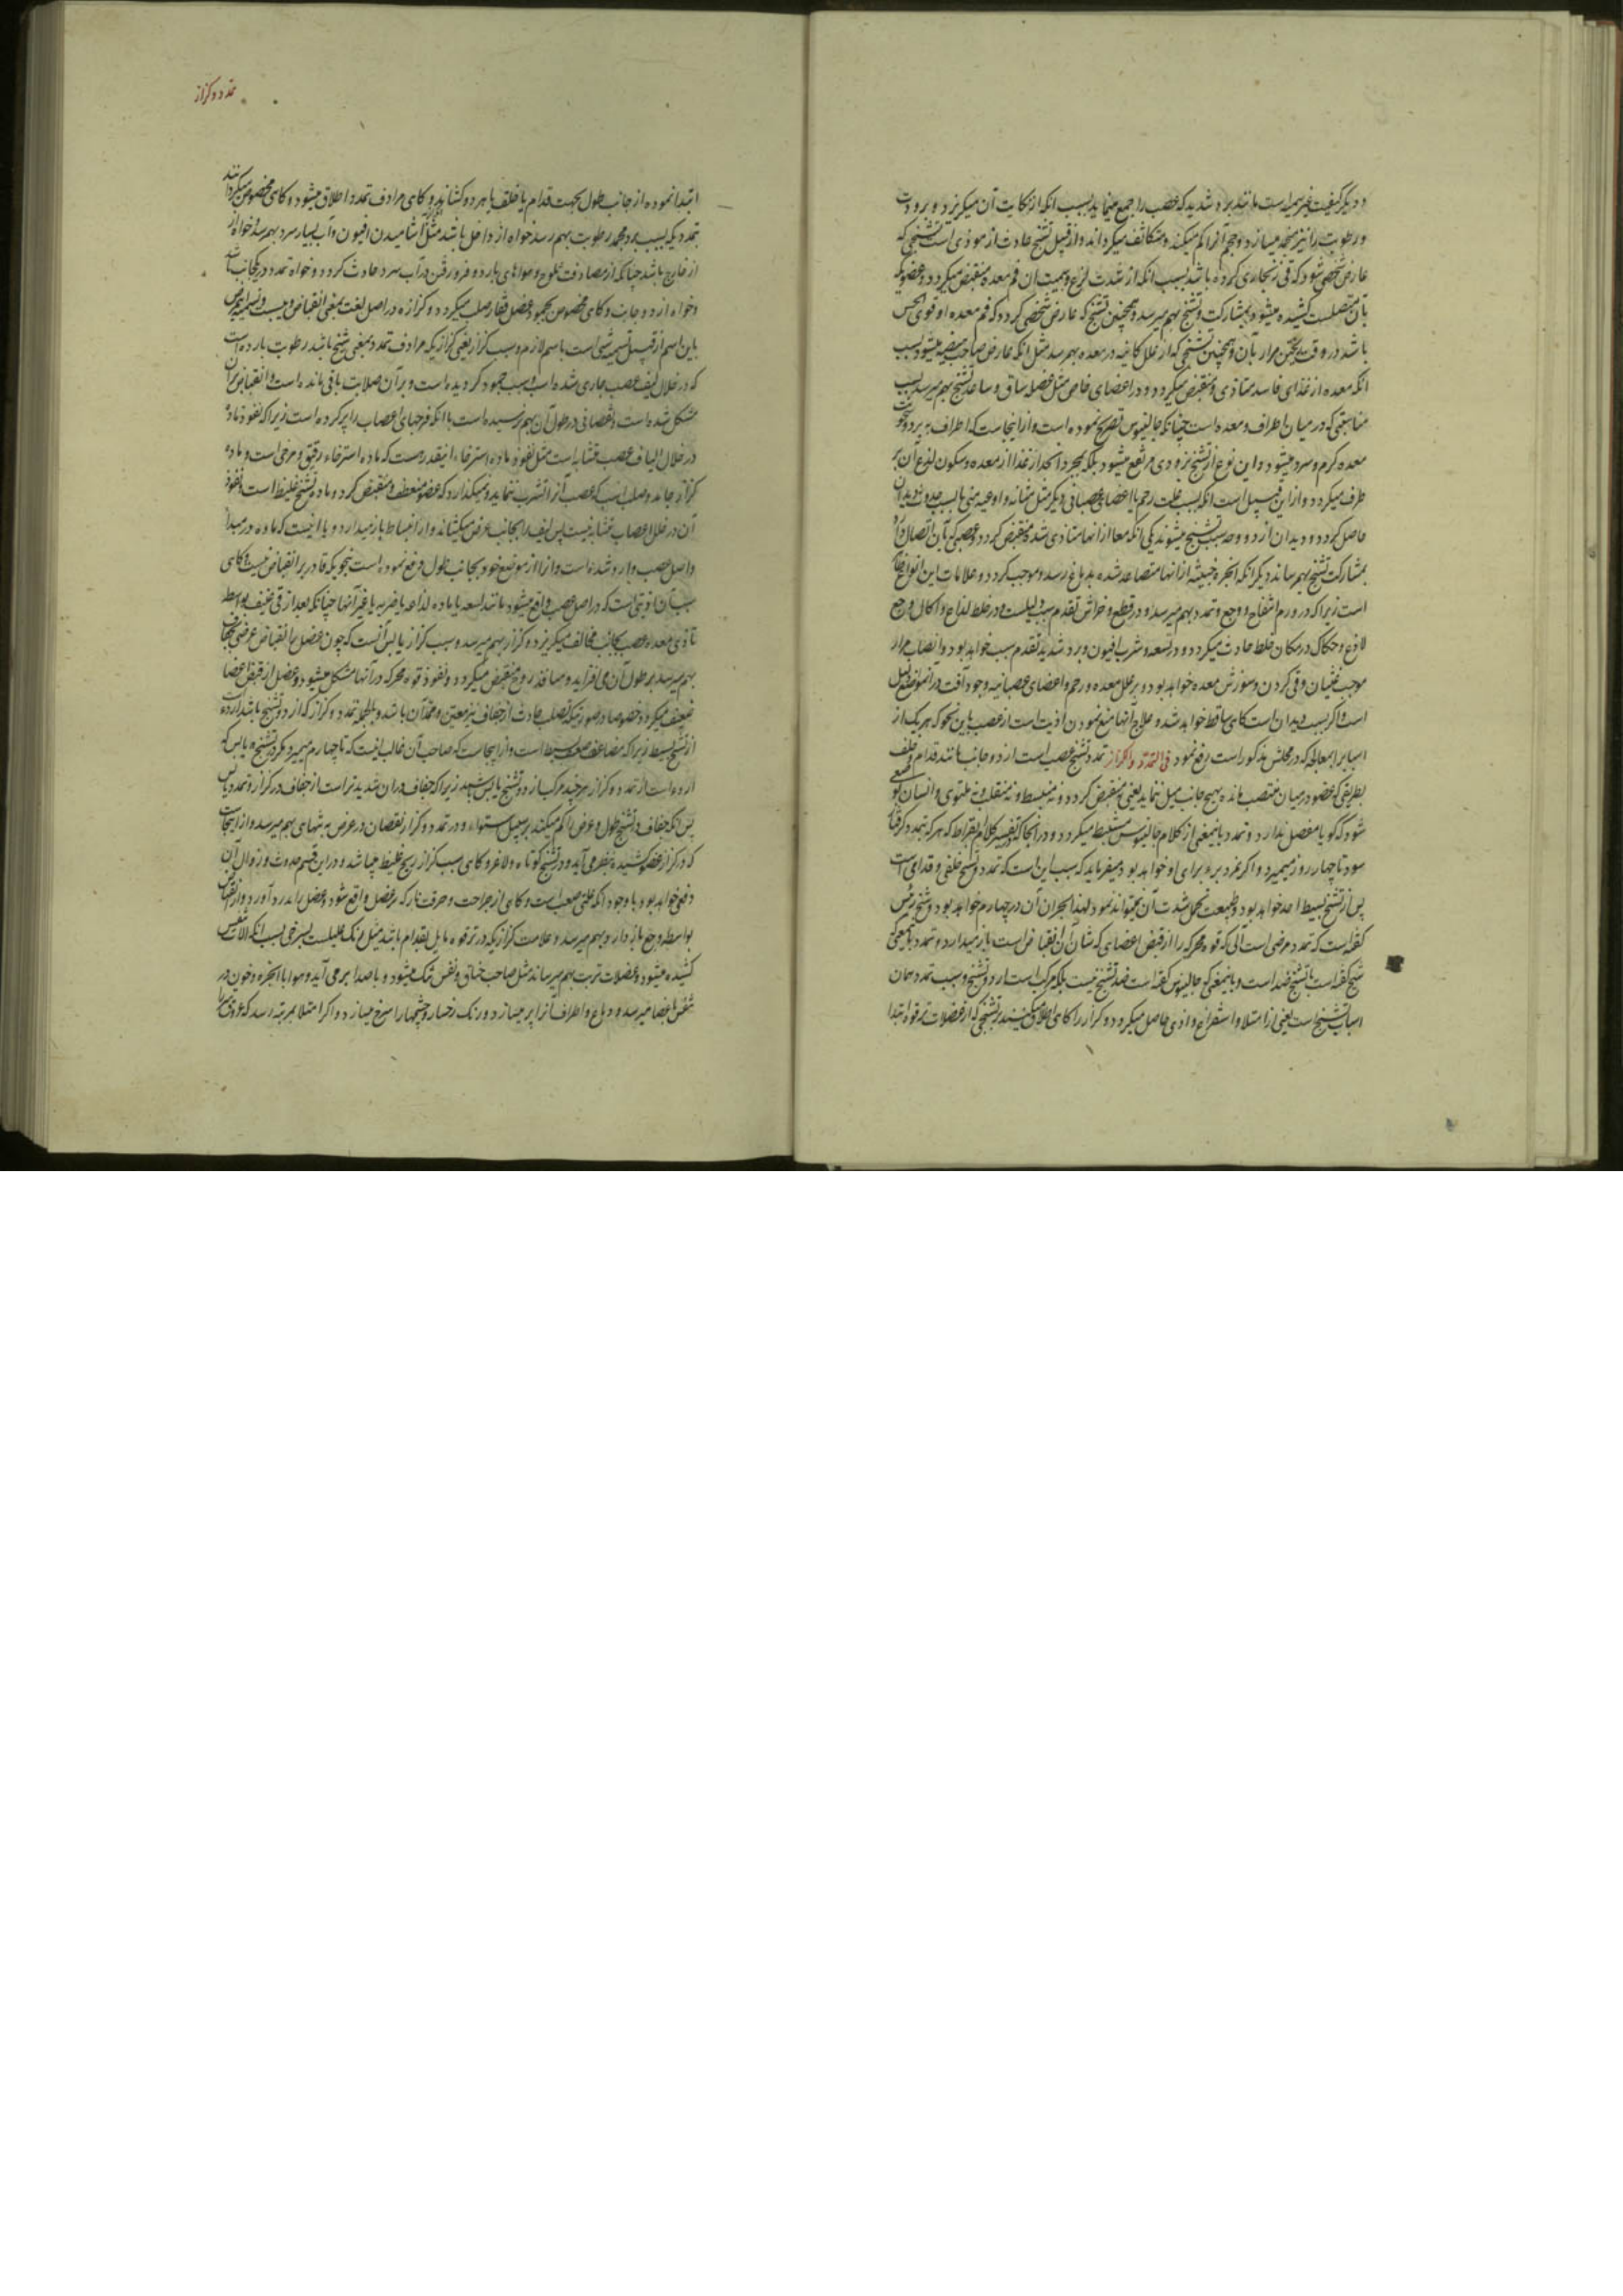 و دیگر کیفیت غیر سمیه است مانند برد شدید که عصب را جمع مینماید بسبب انکه از نکایت آن میکریزد و برودت
و رطوبت را نیز منجمد میسازد و حجم آنرا کم میکند و متکاثف میکرداند و از قبیل تشنج حادث از موذی است تشنجی که
عارض شخصی شود که قی زنجاری کرده باشد بسبب انکه از شدت لذع و سمیت ان فم معده منقبض میکردد و عضویکه
بان متصلست کشیده میشود و بمشارکت تشنج بهم میرسد و همچنین تشنج که عارض شخصی کردد که فم معده او قوی الحس
باشد در وقت ریختن مرار بآن و همچنین تشنجی که از خلل کاینه در معده بهم رسد مثل انکه عارض صاحب هیضه میشود بسبب
انکه معده از غذای فاسد متاذی و منقبض میکردد و در اعضای خاص مثل عضله ساق و ساعد تشنج بهم میرسد بسبب
مناسبتی که در میان اطراف و معده است چنانکه جالینوس تصریح نموده است و از اینجاست که اطراف به برد و سخونت
معده کرم و سرد میشود و این نوع از تشنج بزودی مرتفع میشود بلکه بمجرد انحدار غذا از معده و سکون لذع آن بر
طرف میکردد و از این قبیل است انکه بسبب علت رحم یا اعضای عصبانی دیکر مثل مثانه و اوعیه منی یا بسبب حدوث دیدان
حاصل کردد و دیدان از دو وجه سبب تشنج میشوند یکی انکه معا از انها متاذی شده منقبض کردد و عصبی که بآن اتصال دارد
بمشارکت تشنج بهم رساند دیکر انکه ابخره خبیثه از انها متصاعد شده بدماغ رسد و موجب کردد و علامات این انواع ظاهر
است زیرا که در ورم انتفاخ و وجع و تمدد بهم میرسد و در قطع و خراش تقدم سبب دلیلست و در خلط لذاع و اکال وجع
لاذع و حکاک در مکان خلط حادث میکردد و در لسعه و شرب افیون و برد شدید تقدم سبب خواهد بود و انصباب مرار
موجب غثیان و قی کردن و سوزش معده خواهد بود و بر علل معده و رحم و اعضای عصبانیه وجود آفت در آنموضع دلیل
است و اکر بسبب دیدان است کاهی ساقط خواهد شد و علاج آنها منع نمودن اذیت است از عصب باین نحو که هر یک از
اسباب را بمعالجه که در محلش مذکور است رفع نمود فی التمدد و الکزاز تمدد تشنج عصب است از دو جانب مانند قدام و خلف
بطریقی که عضو در میان منتصب مانده بهیچ جانب میل ننماید یعنی نه منقبض کردد و نه منبسط و نه منقلب و نه ملتوی و انسان بوضعی
شود که کویا مفصل ندارد و تمدد باینمعنی از کلام جالینوس مستنبط میکردد و در انجا که تفسیر کلام بقراط که هر که بتمدد کرفتار
شود تا چهار روز میمیرد و اکر نمرد برء برای او خواهد بود میفرماید که سبب این است که تمدد و تشنج خلفی و قدامی است
پس از تشنج بسیط احد خواهد بود و طبیعت تحمل شدت آن نمیتواند نمود لهذا بحران آن در چهارم خواهد بود و شیخ رئیس
کفته است که تمدد مرضی است آلی که قوه محرکه را از قبض اعضای که شان آن انقباض است باز میدارد و تمدد بمعنی که
شیخ کفته است با تشنج ضد است و باینمعنی که جالینوس کفته است ضد تشنج نیست بلکه مرکب است از دو تشنج و سبب تمدد همان
اسباب تشنج است یعنی از امتلا و استفراغ و اذی حاصل میکردد و کزاز را کاهی اطلاق میکنند بر تشنجی که از عضلات ترقوه ابتدا
تمدد و کزاز
ابتدا نموده از جانب طول بجهت قدام یا خلف یا هر دو کشاند و کاهی مرادف تمدد اطلاق میشود و کاهی مخصوص میکردانند
بتمددیکه بسبب برد مجمد رطوبت بهم رسد خواه از داخل باشد مثل آشامیدن افیون و آب بسیار سرد بهم رسد و خواه از
از خارج باشد چنانکه از مصادفت ثلوج و هواهای بارد و فرو رفتن در آب سرد حادث کردد و خواه تمدد در یکجانب باشد
و خواه از دو جانب و کاهی مخصوص بجمود عضل فقار صلب میکردد و کزازه در اصل لغت بمعنی انقباض و یبس است و تسمیه این مرض
باین اسم از قبیل تسمیه شی است باسم لازم و سبب کزاز یعنی کزازیکه مرادف تمدد بمعنی شیخ باشد رطوبت بارده است
که در خلال لیف عصب جاری شده است بسبب جمود کردیده است و بر آن صلابت باقی مانده است و انقباض بران
مشکل شده است و نقصانی در طول آن بهم نرسیده است با انکه فرجهای اعصاب را پر کرده است زیرا که نفوذ ماده
در خلال الیاف عصب متشابه است مثل نفوذ ماده استرخاء اینقدر هست که ماده استرخاء رقیق و مرخی است و ماده
کزاز جامد و صلب است که عصب آنرا تشرب ننماید و نمیکذارد که عضو منعطف و منقبض کردد و ماده تشنج غلیظ است و نفوذ
آن در خلل اعصاب متشابه نیست پس لیف را بجانب عرض میکشاند و از انبساط باز میدارد و یا اذیست که ماده در مبدا
و اصل عصب وارد شده است و از از موضع خود بجانب طول دفع نموده است بنحویکه قادر بر انقباض نیست و کاهی
سبب آن اذیتی است که در اصل عصب واقع میشود مانند لسعه یا ماده لذاعه یا ضربه یا غیر آنها چنانکه بعد از قی عنیف بواسطه
تاذی معده عصب بجانب مخالف میکریزد و کزاز بهم میرسد و سبب کزاز یابس آنست که چون عضل را انقباض عرضی از جفاف
بهم میرسد بر طول آن می افزاید و منافذ روح منقبض میکردد و نفوذ قوه محرکه در آنها مشکل میشود و عضل از قبض اعضا
ضعیف میکردد خصوصا در صورتیکه تصلب حادث از جفاف نیز معین و ممد آن باشد و بالجمله تمدد و کزاز که از دو تشنج باشد اردء
از تشنج بسیط زیرا که مضاعف بسیط است و از اینجاست که صاحب آن غالب اینست که تا چهارم میمیرد مکر در تشنج و یابس که
ارده است از تمدد و کزاز هر چند مرکب از دو تشنج یابس باشند زیرا که جفاف در ان شدیدتر است از جفاف در کزاز و تمدد یابس
پس انکه جفاف در تشنج طول و عرض را کم میکند بر سبیل استواء و در تمدد و کزاز نقصان در عرض به تنهای بهم میرسد و از اینجاست
که در کزاز عضو کشیده بنظر می آید و در تشنج کوتاه و لاغر و کاهی سبب کزاز ریح غلیظ میباشد و در این قسم حدوث و زوال آن
دفعی خواهد بود با وجود انکه علتی صعب است و کاهی از جراحت و حرقت نار که بر عضل واقع شود و عضل را بدرد آورد و از انقباض
بواسطه وجع باز دارد بهم میرسد و علامت کزازیکه در ترقوه مایل بقدام باشد مثل و رنک علیلست بسرخی بسبب انکه آلات تنفس
کشیده میشود و عضلات ترب بهم میرساند مثل صاحب خناق و نفس تنک میشود و با صدا بر می آید و هوا با ابخره و خون در
تنفس باعضا میرسد و دماغ و اطراف آنرا پر میسازد و رنک رخسار و چشمها را سرخ میسازد و اکر امتلا بمرتبه رسد که عروق را